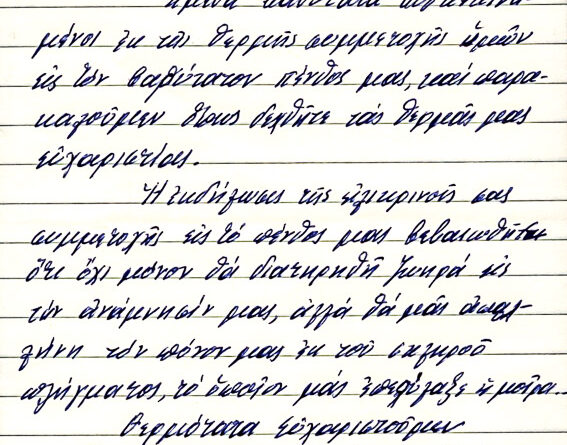 μένοι ἐκ τῆς θερμῆς συμμετοχῆς ὑμῶν
εἰς τὸν βαθύτατον πένθος μας, καί παρα-
καλοῦμεν ὅπως δεχθῆτε τάς θερμάς μας
εὐχαριστίας.
Ἡ ἐκδήλωσις τῆς εἰλικρινοῦς σας
συμμετοχῆς εἰς τό πένθος μας βεβαιωθῆτε
ὅτι ὄχι μόνον θά διατηρηθῇ ζωηρά εἰς
τήν ἀνάμνησίν μας, ἀλλά θά μᾶς ἁπαλ-
λύνῃ τόν πόνον μας ἐκ τοῦ σκληροῦ
πλήγματος, τό ὁποῖον μᾶς ἐπεφύλαξε ἡ μοῖρα..
Θερμότατα εὐχαριστοῦμεν